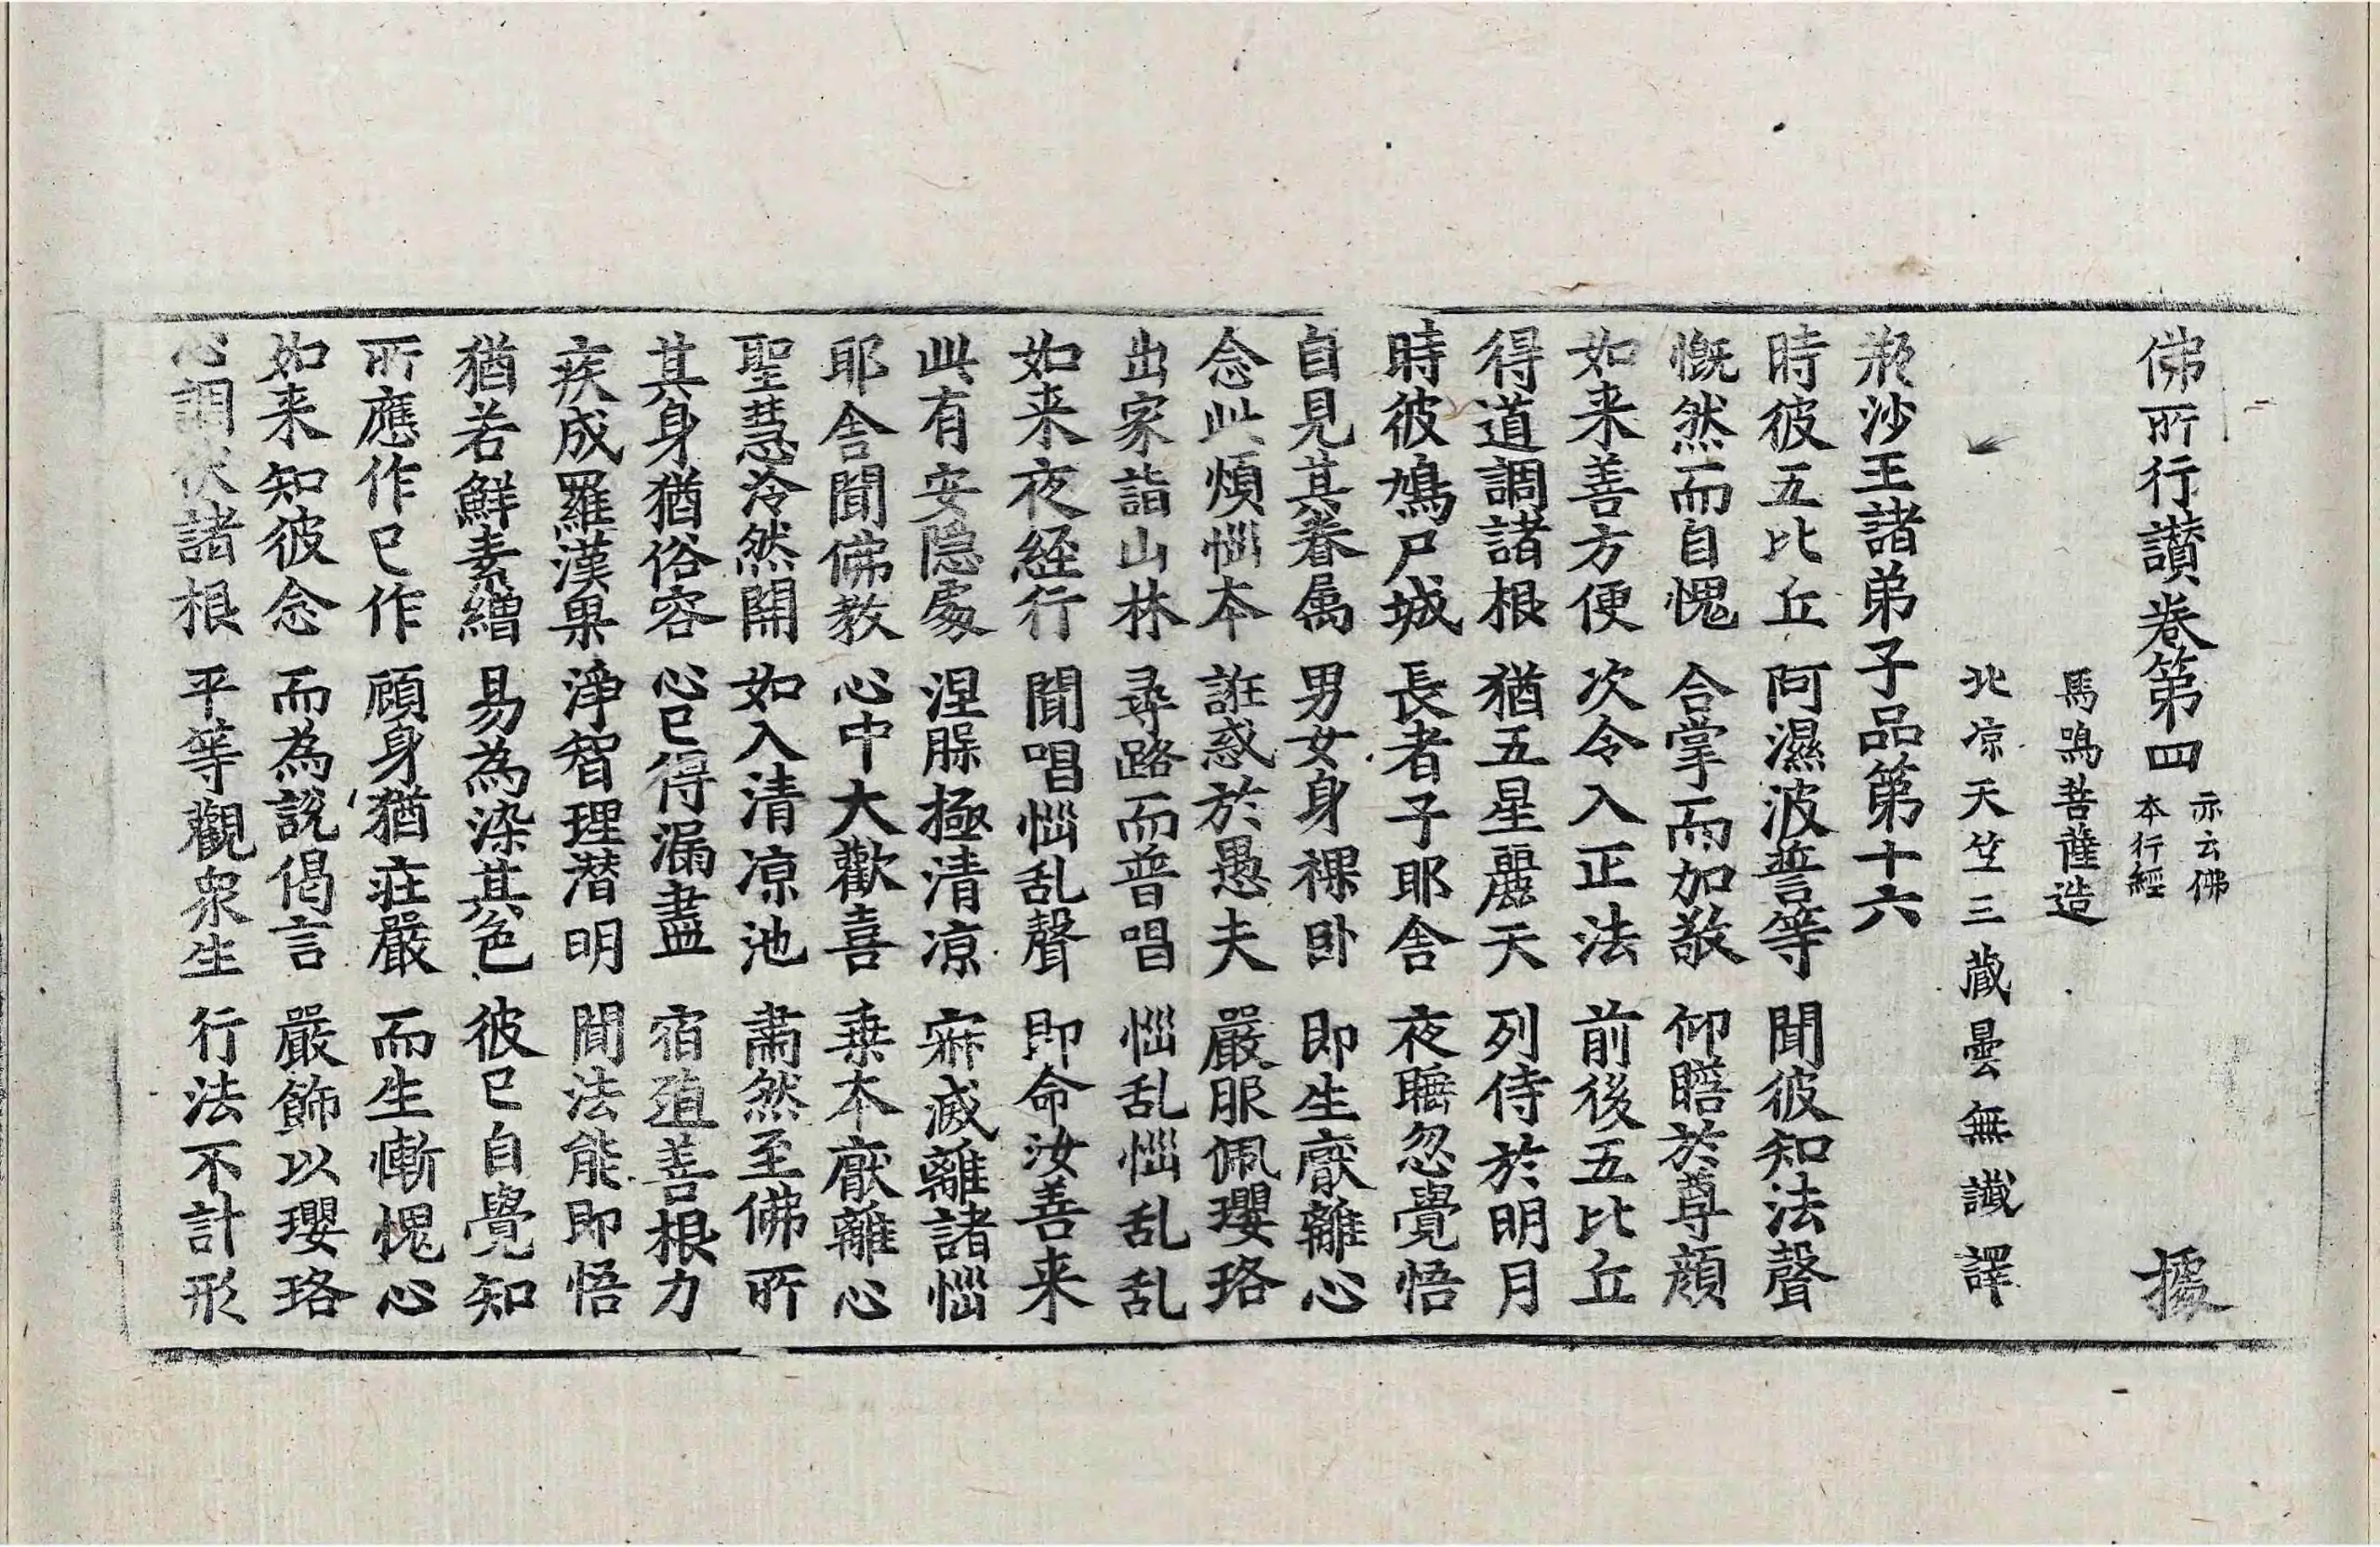 佛所行讃卷第四 亦云佛本行經 據
馬鳴菩薩造
北涼天竺三藏曇無讖譯
瓶沙王諸弟子品第十六
時彼五比丘 阿濕波誓等 聞彼知法聲
慨然而自愧 合掌而加敬 仰瞻於尊顔
如来善方便 次令入正法 前後五比丘
得道調諸根 猶五星麗天 列侍於明月
時彼鳩尸城 長者子耶舍 夜睡忽覺悟
自見其眷属 男女身裸卧 即生厭離心
念此煩惱本 誑惑於愚夫 嚴服佩瓔珞
出家詣山林 尋路而普唱 惱乱惱乱乱
如来夜経行 聞唱惱乱聲 即命汝善来
此有安隱處 涅槃極清涼 寂滅離諸惱
耶舍聞佛教 心中大歡喜 乗本厭離心
聖慧泠然開 如入清涼池 肅然至佛所
其身猶俗容 心已得漏盡 宿殖善根力
疾成羅漢果 淨智理潛明 聞法能即悟
猶若鮮素繒 易為染其色 彼已自覺知
所應作已作 顧身猶莊嚴 而生慚愧心
如来知彼念 而為説偈言 嚴飾以瓔珞
心調伏諸根 平等觀衆生 行法不計形